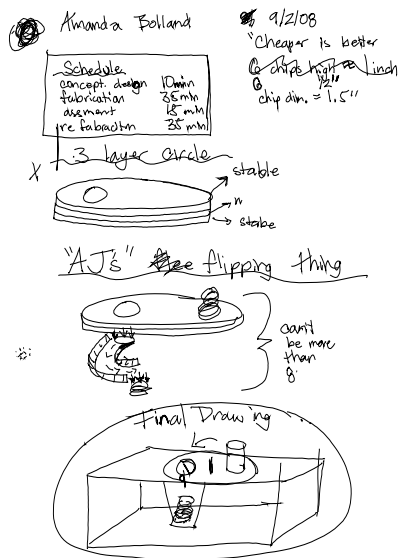 Amanda Bolland
9/2/08
"Cheaper is better
6 chips high = 1 inch
6 1/2"
chip dim. = 1.5"
Schedule
concept. design 10min
fabrication 35min
assment 15 min
re fabracitn 35 min
3 layer circle
X
stable
n
stabe
"AJ's" flipping thing
can't
be more
than
8.
Final Drawing